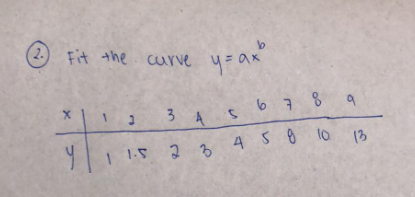 2. Fit the curve y = ax^b
x 1 2 3 4 5 6 7 8 9
y 1 1.5 2 3 4 5 8 10 13